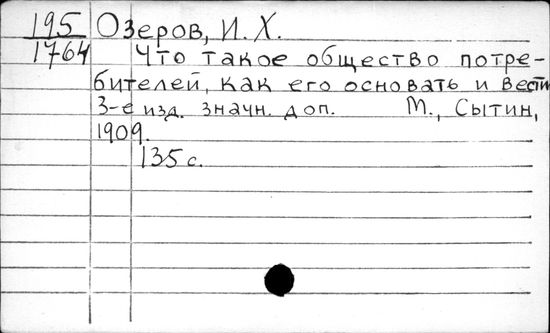 195 Озеров, И. Х.
1764 Что такое общество потре-
бителей, как его основать и вести
3-е изд. значн. доп. М., Сытин,
1909.
135 с.